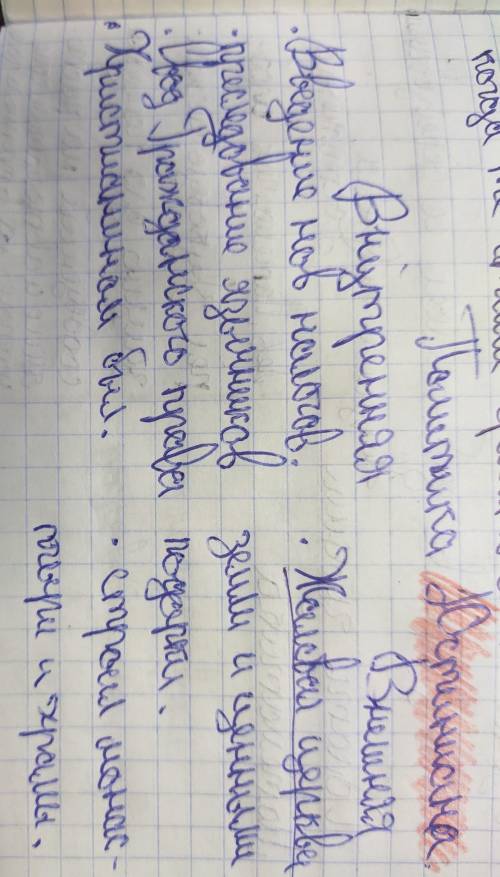 когда
Политика Юстиниана.
Внутренняя
• Введение нов налогов.
• преследование язычников
• Свод Гражданского права
• Христианином был.
Внешняя
• Жаловал церкви
земли и ценными
подарки.
• строил монас-
тыри и храмы.